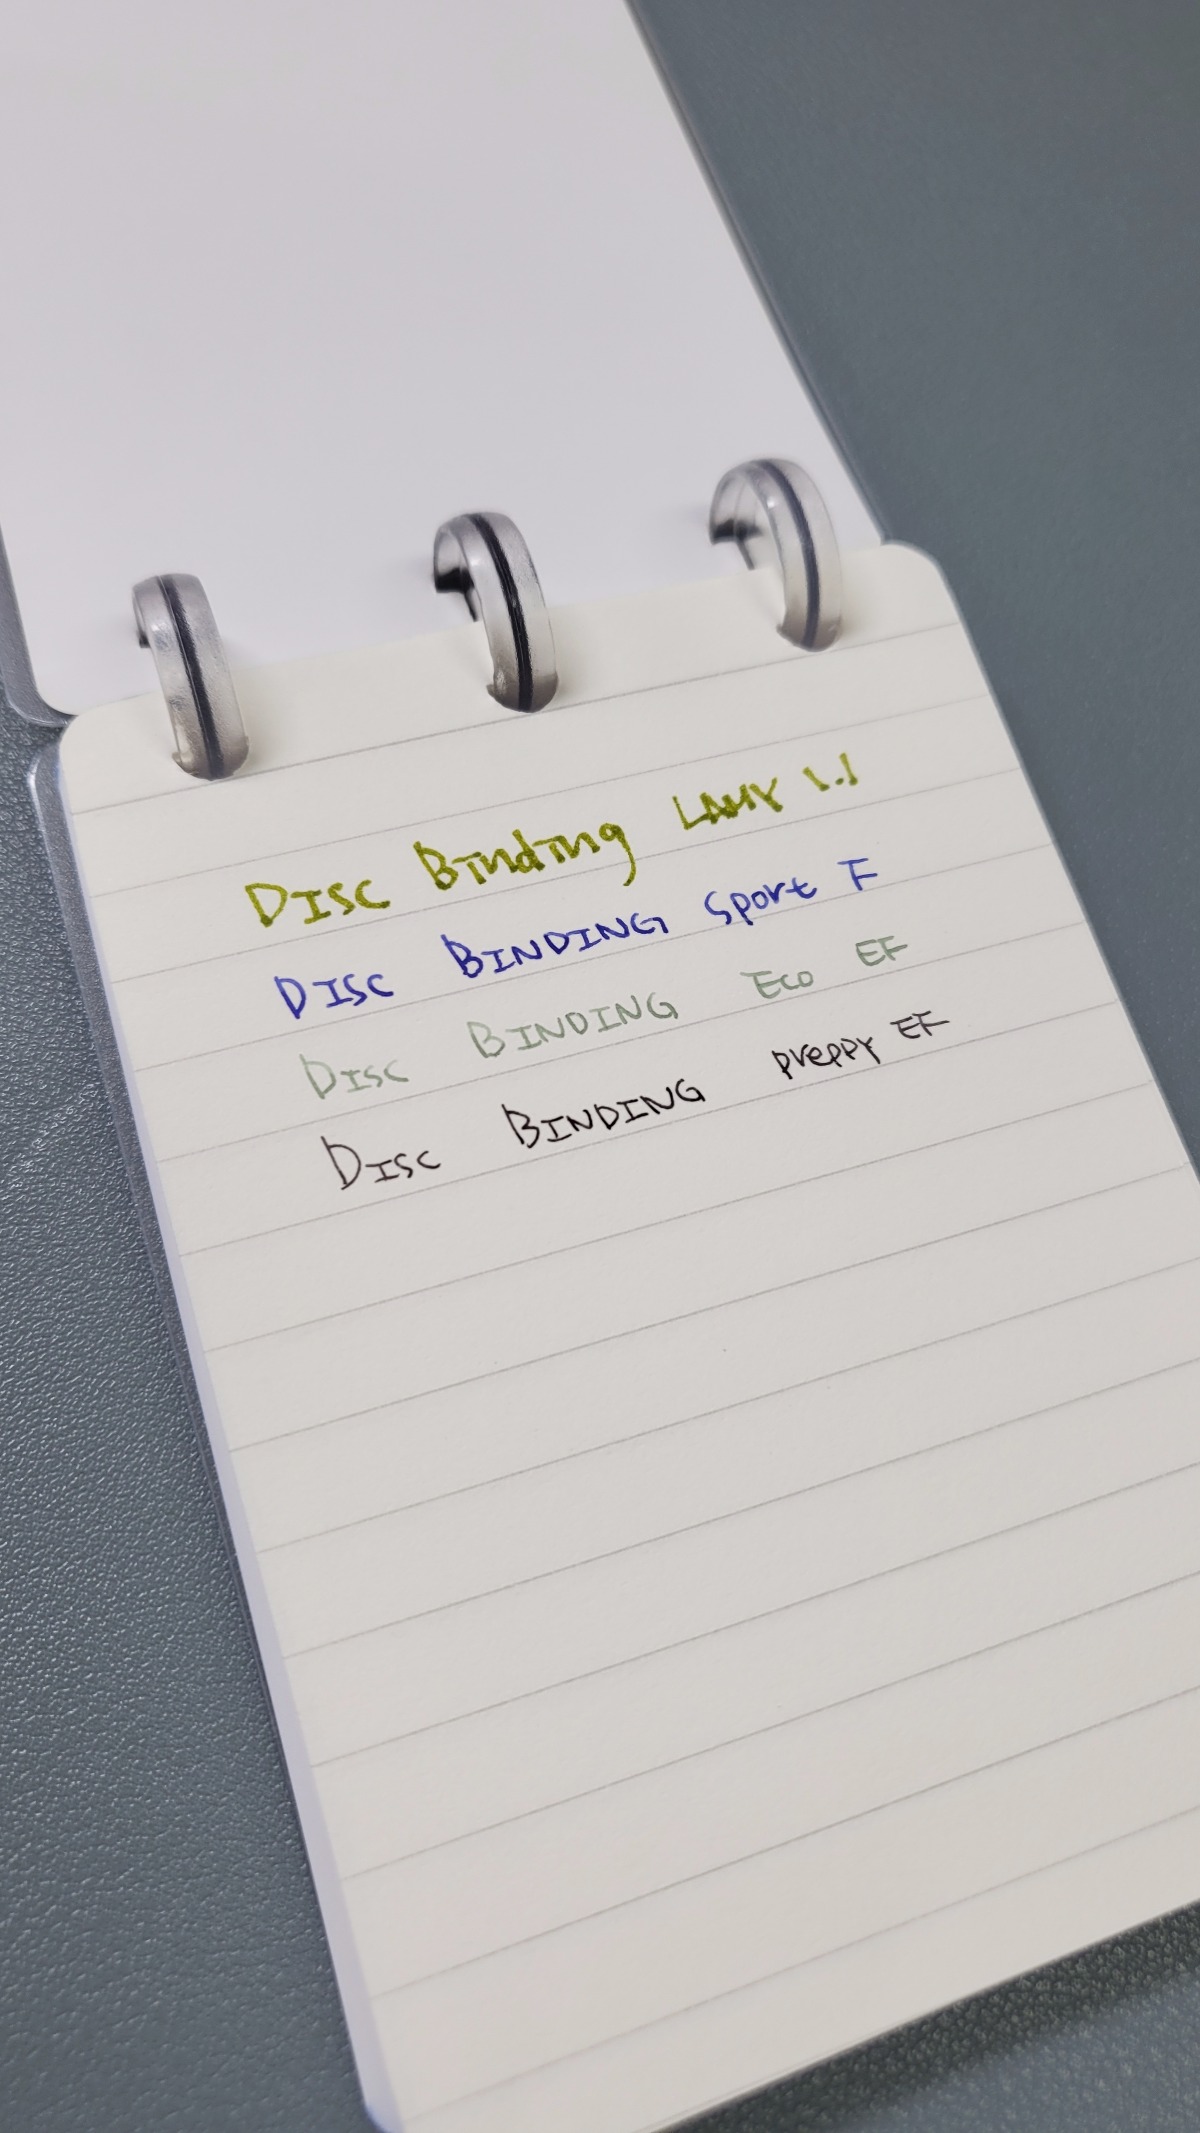 Disc Binding LAMY 1.1
DISC BINDING Sport F
DISC BINDING Eco EF
DISC BINDING preppy EF